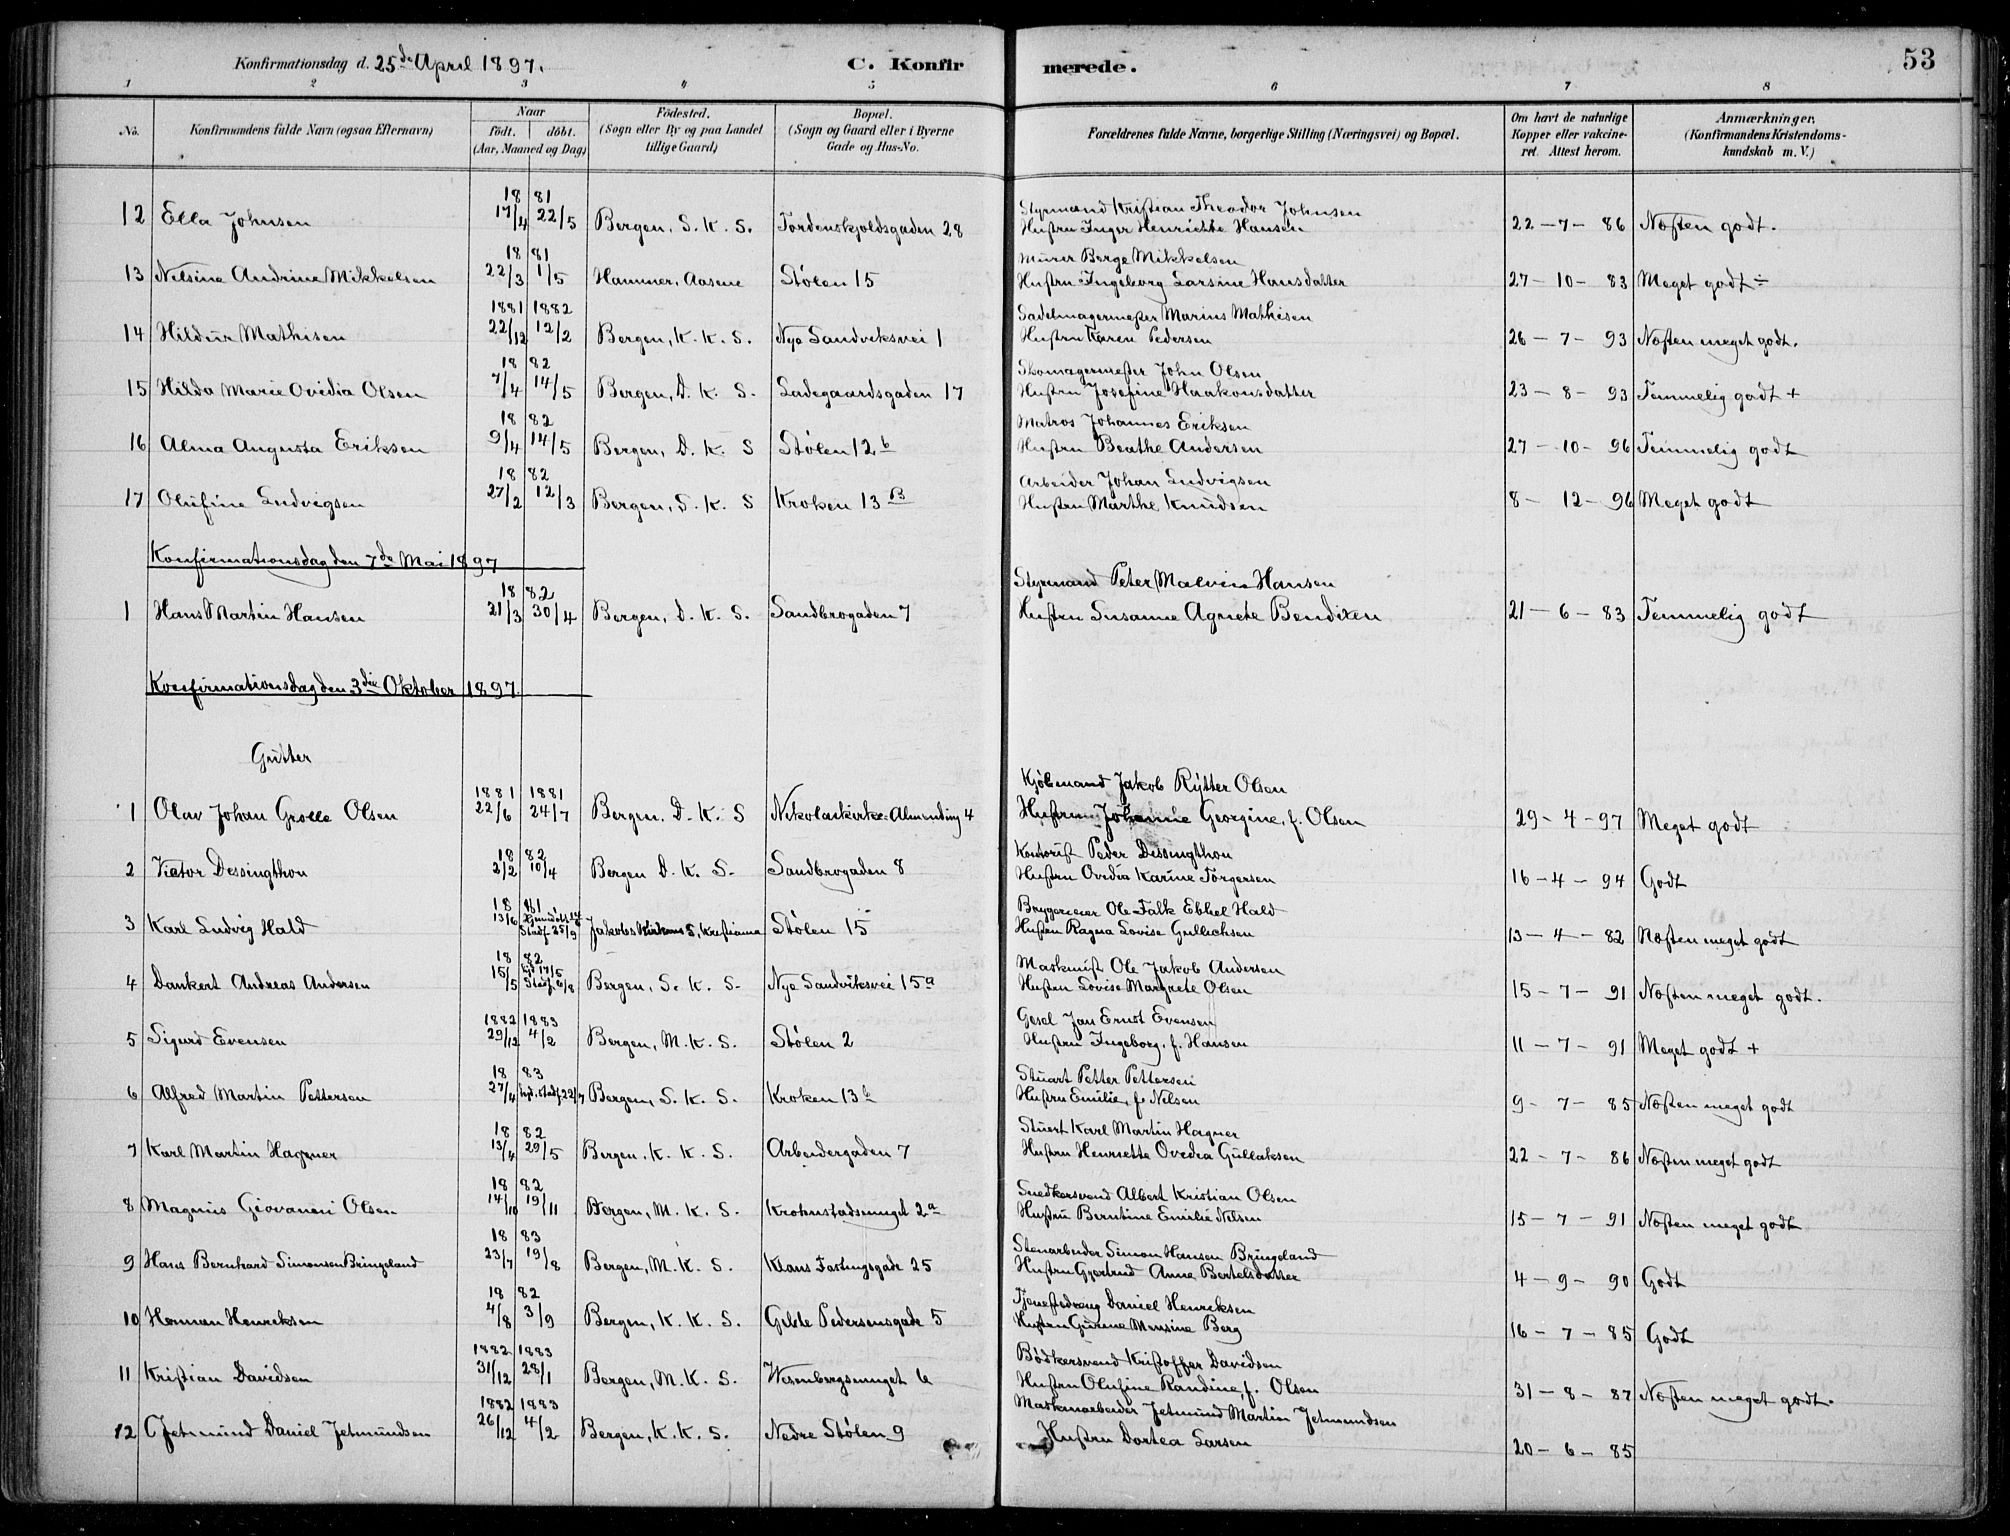 Konfirmationsdag d. 25de April 1897. C. Konfirmerede. 53
1 2 3 4 5 6 7 8
No. Konfirmandens fulde Navn (ogsaa Efternavn) Naar födt. döbt. (Aar, Maaned og Dag) Födested. (Sogn eller By og paa Landet tillige Gaard) Bopæl. (Sogn og Gaard eller i Byerne Gade og Hus-No. Forældrenes fulde Navne, borgerlige Stilling (Næringsvei) og Bopæl. Om havt de naturlige Kopper eller vakcineret. Attest herom. Anmærkninger. (Konfirmandens Kristendomskundskab m. V.)
18 81 Styrmand Kristian Theodor Johnsen
12 Ella Johnsen 17/4 22/5 Bergen, S. K. S. Tordenskjoldsgaden 28 Hustru Inger Henriette Hansen 22-7-86 Næsten godt.
18 81 Murer Berge Mikkelsen
13 Nilsine Andrine Mikkelsen 22/3 1/5 Hammer, Aasene Stølen 15 Hustru Ingeborg Larsine Hansdatter 27-10-83 Meget godt ÷
1881 1882 Sadelmagermester Marius Mathisen
14 Hildur Mathisen 22/12 12/2 Bergen, K. K. S. Nye Sandviksvei 1 Hustru Karen Pedersen 26-7-93 Næsten meget godt.
18 82 Skomagermester John Olsen
15 Hilda Marie Ovedia Olsen 7/4 14/5 Bergen, D. K. S. Ladegaardsgaden 17 Hustru Josefine Haakonsdatter 23-8-93 Temmelig godt +
18 82 Matros Johannes Eriksen
16 Alma Augusta Eriksen 9/4 14/5 Bergen, D. K. S Stølen 12 b Hustru Beathe Andersen 27-10-96 Temmelig godt
18 82 Arbeider Johan Ludvigsen
17 Olufine Ludvigsen 27/2 12/3 Bergen, S. K. S Kroken 13 B Hustru Marthe Knudsen 8-12-96 Meget godt
Konfirmationsdag den 7de Mai 1897
18 82 Styrmand Peter Malvin Hansen
1 Hans Martin Hansen 21/3 30/4 Bergen, D. K. S. Sandbrogaden 7 Hustru Susanne Agnete Bendixen 21-6-83 Temmelig godt
Konfirmationsdag den 3die Oktober 1897.
Gutter
1881 1881 Kjøbmand Jakob Rytter Olsen
1 Olav Johan Grolle Olsen 22/6 24/7 Bergen. D. K. S Nikolaikirke-Almending 4 Hustru Johanne Georgine, f. Olsen 29-4-97 Meget godt
18 82 Kontorist Peder Dessingthon
2 Victor Dessingthon 2/2 10/4 Bergen D. K. S. Sandbrogaden 8 Hustru Ovedia Karine Torgersen 16-4-94 Godt
18 81 Bryggerieier Ole Falk Ebbel Hald
3 Karl Ludvig Hald 13/6 Stadf. 25/9 Jakobs Kirkens S, Kristiania Stølen 15 Hustru Ragna Lovise Gullichsen 13-4-82 Næsten meget godt
18 82 Maskinist Ole Jakob Andersen
4 Dankert Andreas Andersen 15/5 Hjd 17/5 Stadf. 6/8 Bergen, S. K. S. Nye Sandviksvei 15a Hustru Lovise Margrete Olsen 15-7-91 Næsten meget godt.
1882 1883 Gesel Jan Ernst Evensen
5 Sigurd Evensen 29/12 4/2 Bergen, M. K. S. Stølen 2 Hustru Ingeborg, f. Hansen 11-7-91 Meget godt +
18 83 Stuart Petter Pettersen
6 Alfred Martin Pettersen 27/4 hjd. stadf. 22/7 Bergen, S. K. S. Kroken 13 b Hustru Emilie, f. Nilsen 9-7-85 Næsten meget godt
18 82 Stuert Karl Martin Hagner
7 Karl Martin Hagner 13/4 29/5 Bergen. K. K. S. Arbeidergaden 7 Hustru Henriette Ovedia Gullaksen 22-7-86 Næsten meget godt
18 82 Snedkersvend Albert Kristian Olsen
8 Magnus Giovanni Olsen 14/10 19/11 Bergen, M. K. S. Krohnstadsmuget 2a Hustru Berntine Emilie Nilsen 15-7-91 Næsten meget godt
18 83 Stenarbeider Simon Hansen Bringeland
9 Hans Bernhard Simonsen Bringeland 23/7 19/8 Bergen, M. K. S. Klaus Fastingsgade 25 Hustru Gjertrud Anne Bertelsdatter 4-9-90 Godt
18 82 Tjenestedreng Daniel Henriksen
10 Herman Henriksen 4/8 3/9 Bergen, K. K. S. Gelde Pedersensgade 5 Hustru Gurene Monsine Berg 16-7-85 Godt
1882 1883 Bødkersvend Kristoffer Davidsen
11 Kristian Davidsen 31/12 28/1 Bergen, M. K. S. Wesenbergsmuget 6 Hustru Olufine Randine, f. Olsen 31-8-87 Næsten meget godt.
1882 1883 Maskinarbeider Jetmund Martin Jetmundsen
12 Jetmund Daniel Jetmundsen 26/12 4/2 Bergen, K. K. S. Nedre Stølen 9 Hustru Dortea Larsen 20-6-85